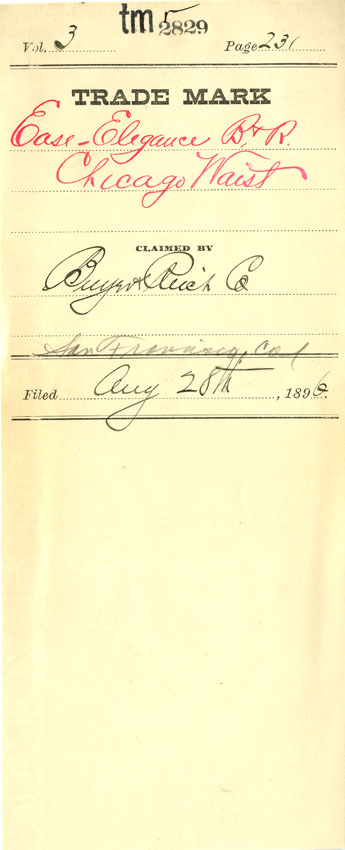 tm 5
2829
Vol. 3 Page 231
TRADE MARK
Ease-Elegance B. & R.
Chicago Waist
CLAIMED BY
& Reich Co
San Francisco, Cal
Filed Aug 28th, 1896.